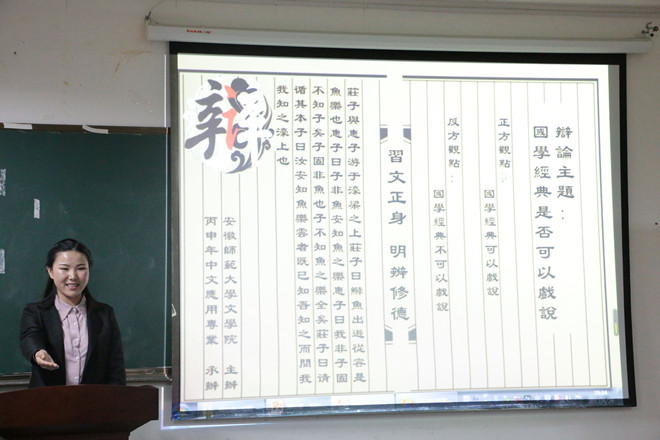 辯論主題：
國學經典是否可以戲說
正方觀點：
國學經典可以戲說
反方觀點：
國學經典不可以戲說
習文正身 明辨修德
莊子與惠子游于濠梁之上莊子曰鰷魚出遊從容是
魚樂也惠子曰子非魚安知魚之樂惠子曰我非子固
不知子矣子固非魚也子不知魚之樂全矣莊子曰请
循其本子曰汝安知魚樂雲者既已知吾知之而問我
我知之濠上也
安徽師範大學文學院 主辦
丙申年中文應用專業 承辦